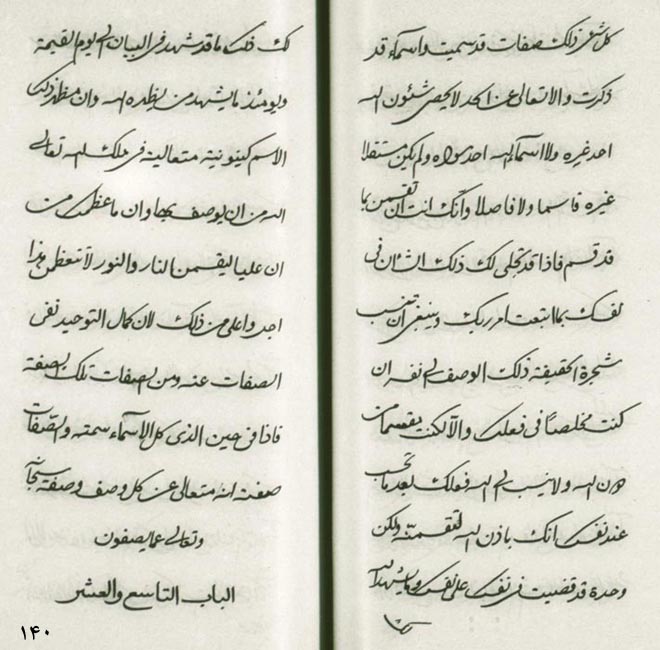 كل شئ ذلك صفات قد سميت واسماء قد
ذكرت والا تعالى عن احد لا يحصى شئون الله
احد غيره ولا اسماء الله احد سواه ولم يكن مستقلا
غيره قاسما ولا فاصلا وانك انت ان تقسمن بما
قد قسم فاذا قد تجلى لك ذلك الشأن فى
نفسك بما اتبعت امر ربك وينبغى ان تنسب
شجرة الحقيقة ذلك الوصف الى نفسه ان
كنت مخلصا فى فعلك والا لكنت بقسمان
دون الله ولا ينسب الى الله فعلك بعد ما تحب
عند نفسك انك باذن الله لتقسمنه ولكن
وحده قد قضيت فى نفسك على نفسك وما يشهد الله
لك ذلك ما قد شهد فى البيان الى يوم القيمة
ويومئذ ما يشهد من يظهره الله وان مظهر ذلك
الاسم كينونية متعالية فى ملك الله تعالى
الله من ان يوصف بها وان ما عظمت من
ان عليا ليقسمن النار والنور لا تتعظمن هذا
اجل واعلى من ذلك لان كمال التوحيد نفى
الصفات عنه ومن الصفات تلك الصفة
فاذا فى حين الذى كل الاسماء سمته والصفات
صفته انه متعالى عن كل وصف وصفة سبحانه
وتعالى عما يصفون
الباب التاسع والعشر
١۴٠